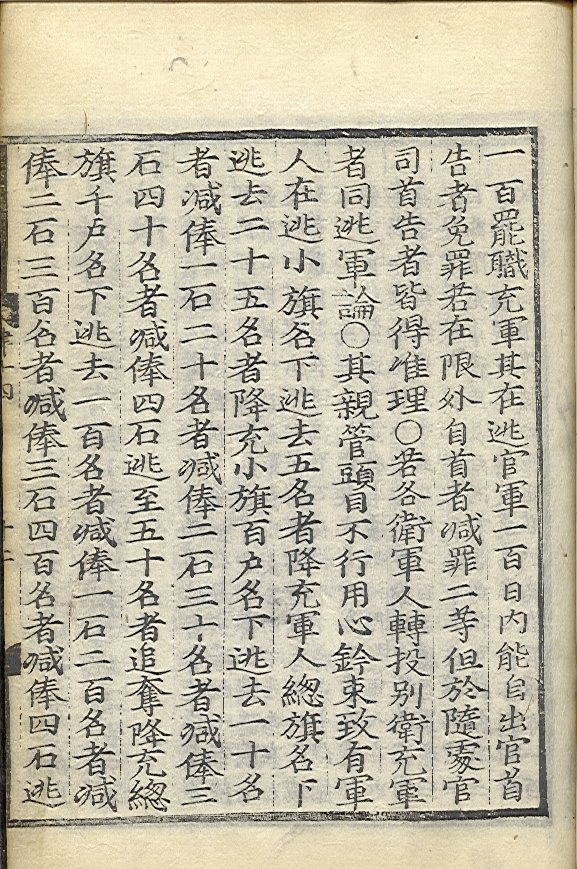 一百罷職充軍其在逃官軍一百日內能自出官首
告者免罪若在限外自首者減罪二等但於隨處官
司首告者皆得准理○若各衛軍人轉投別衛充軍
者同逃軍論○其親管頭目不行用心鈐束致有軍
人在逃小旗名下逃去五名者降充軍人總旗名下
逃去二十五名者降充小旗百户名下逃去一十名
者減俸一石二十名者減俸二石三十名者減俸三
石四十名者減俸四石逃至五十名者追奪降充總
旗千户名下逃去一百名者減俸一石二百名者減
俸二石三百名者減俸三石四百名者減俸四石逃